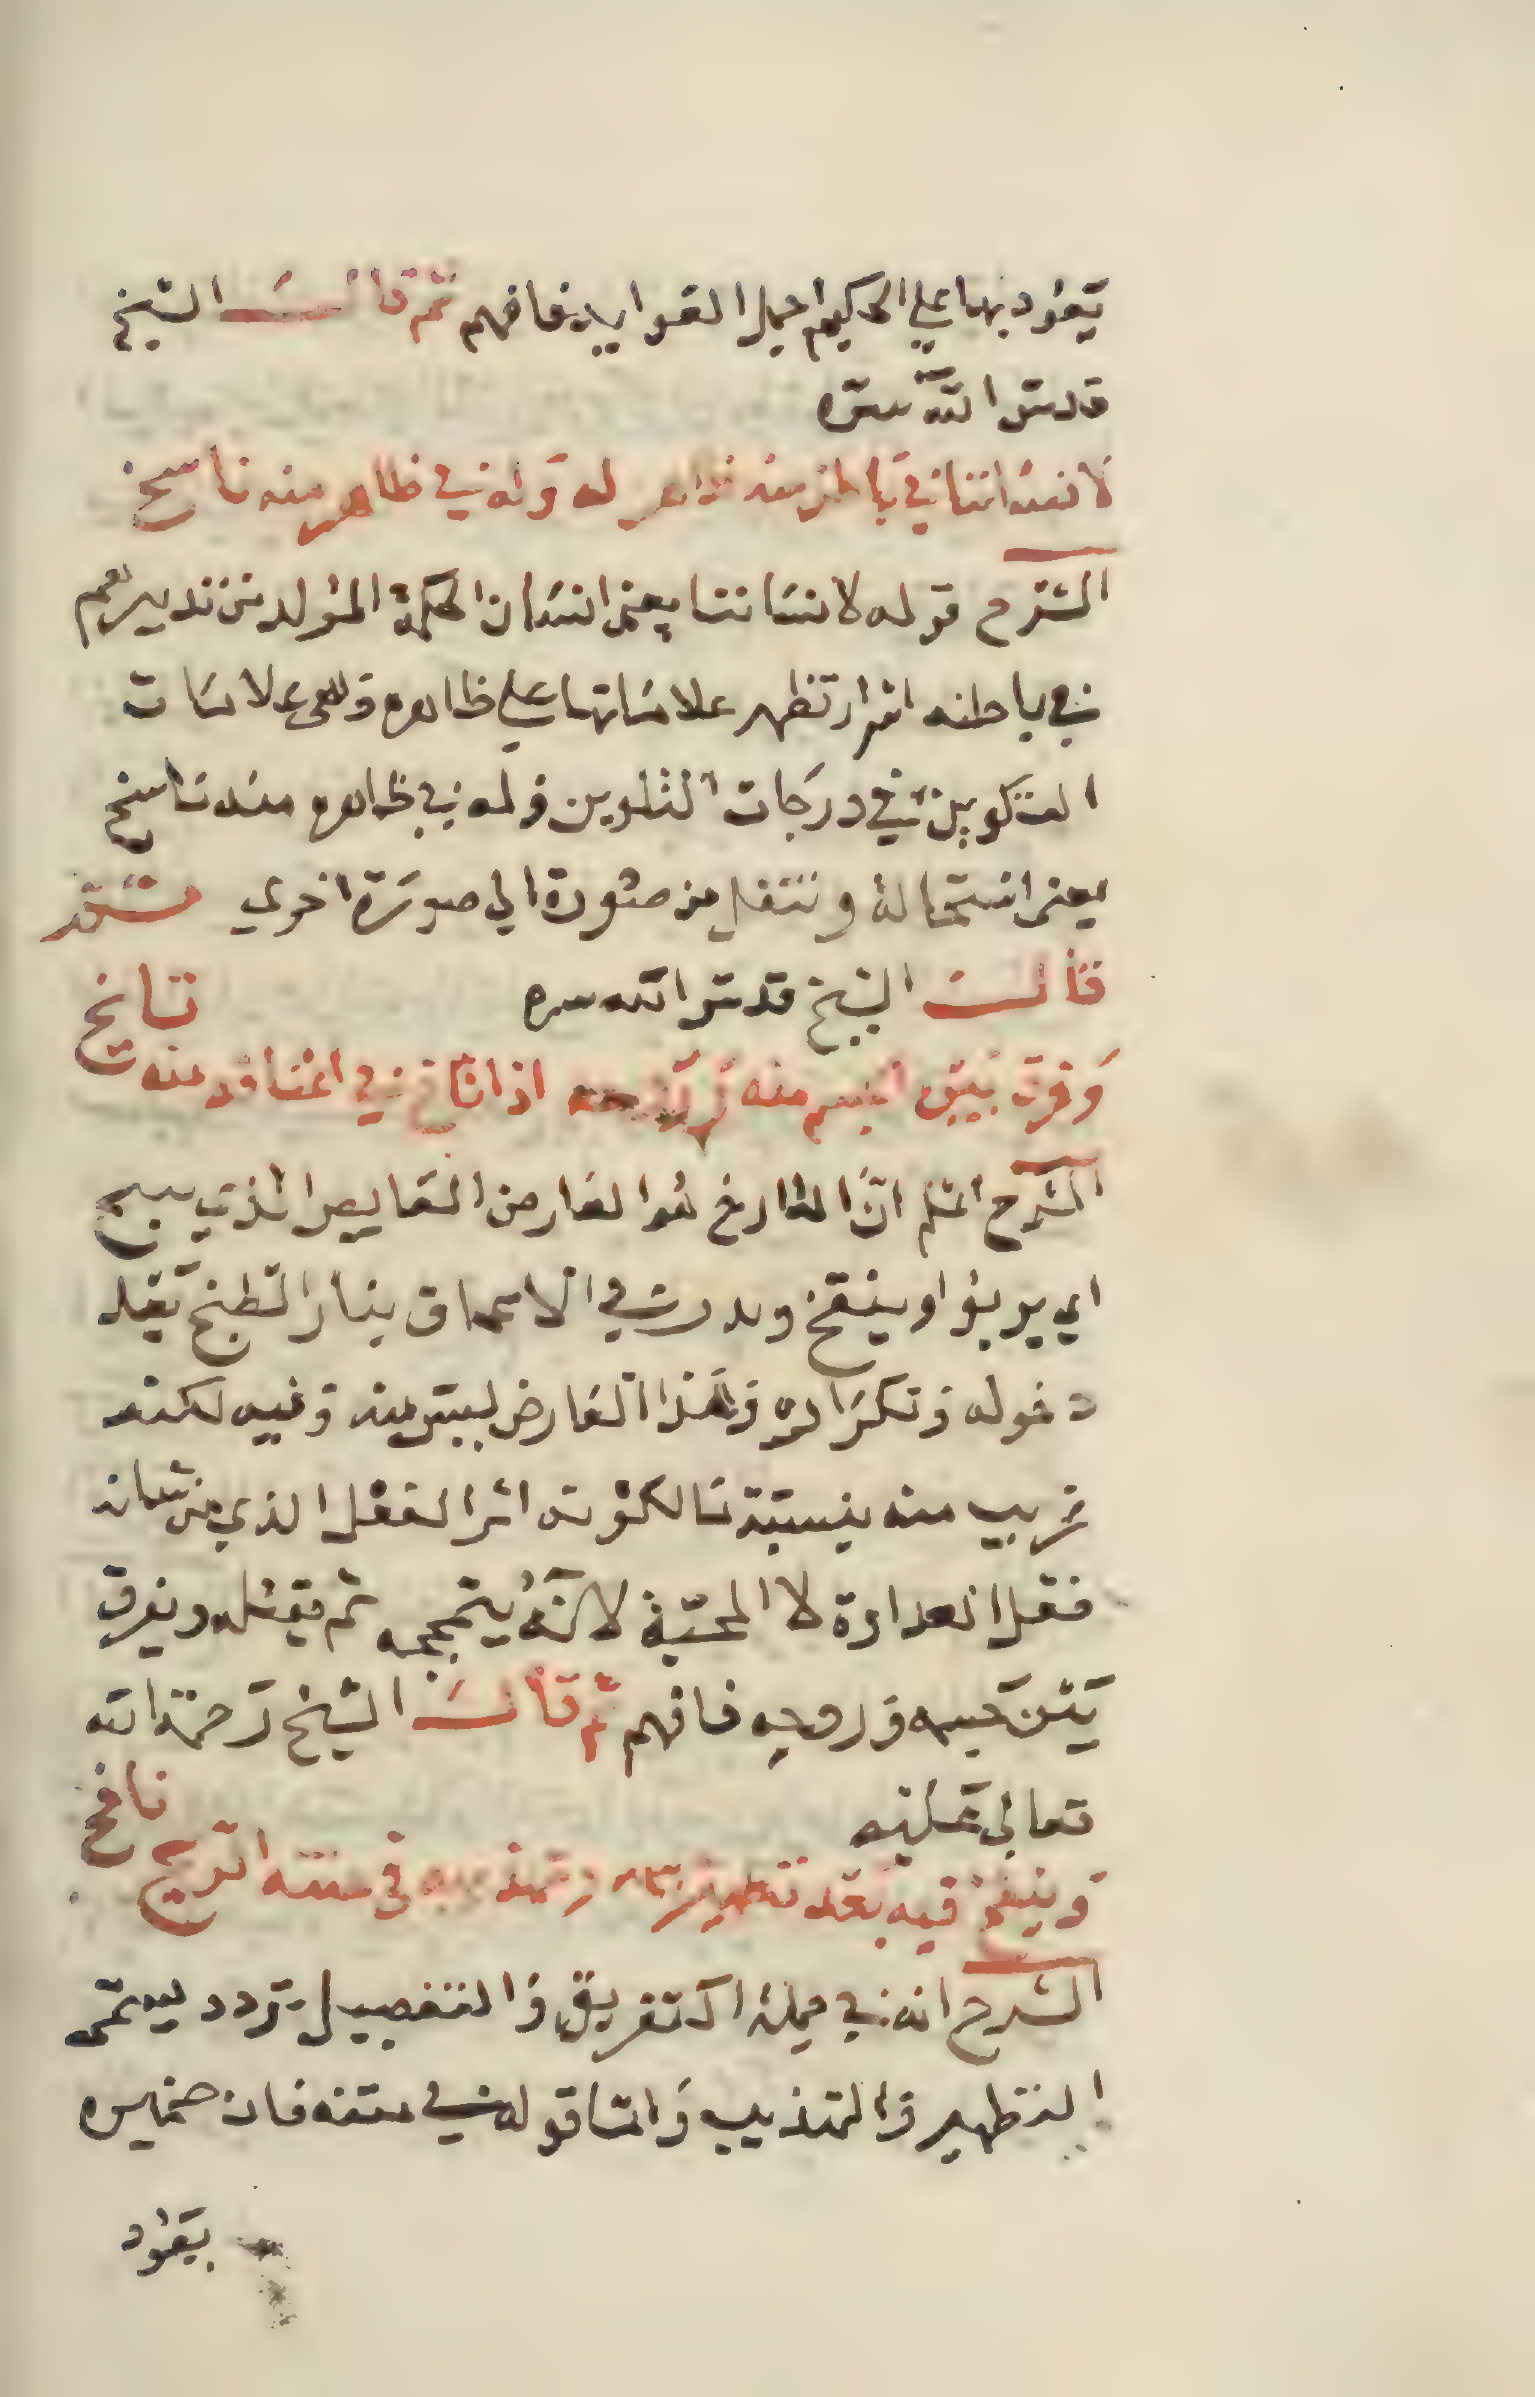 يعود بها على الحكيم اجل الفوايد فافهم ثم قال الشيخ
قدس الله سره
لانساننا في باطن منه ظاهر له وله في ظاهر منه ناسخ
الشرح قوله لانساننا يعني انسان الحكمة المولد من تدبيرهم
في باطنه اسرار تظهر علاماتها على ظاهره وهي علامات
التكوين في درجات التلوين وله في ظاهره منه ناسخ
يعني استحالة وينتقل من صورة الى صورة اخرى
قال الشيخ قدس الله سره
وفرق بين الجسم منه وروحه اذا في اعماقه منه
الشرح اعلم ان هو العارض الغايص الذي
اي يربوا وينفخ في الاعماق بنار الطبخ بعد
دخوله وتكراره وهذا العارض ليس منه وفيه لكنه
غريب منه بنسبة ما لكونه اثر الفعل الذي من شانه
فعل العداوة لا المحبة لانه ثم يقتله ويفرق
بين جسمه وروحه فافهم ثم قال الشيخ رحمة الله
تعالى عليه
نافخ
وينفخ فيه بعد تطهير في الريح
الشرح انه في جملة التفريق والتفصيل تردد يسمى
التطهير والتهذيب واما قوله في فان ضميره
يعود